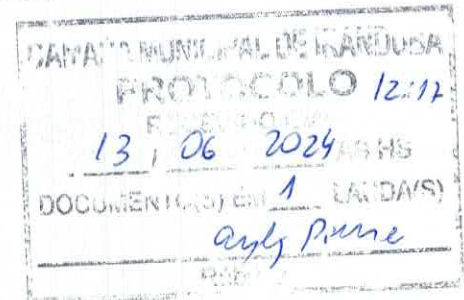 CÂMARA MUNICIPAL DE IRANDUBA
PROTOCOLO 12:17
13 / 06 2024 ÀS HS
DOCUMENTO(S) EM 1 LAUDA(S)